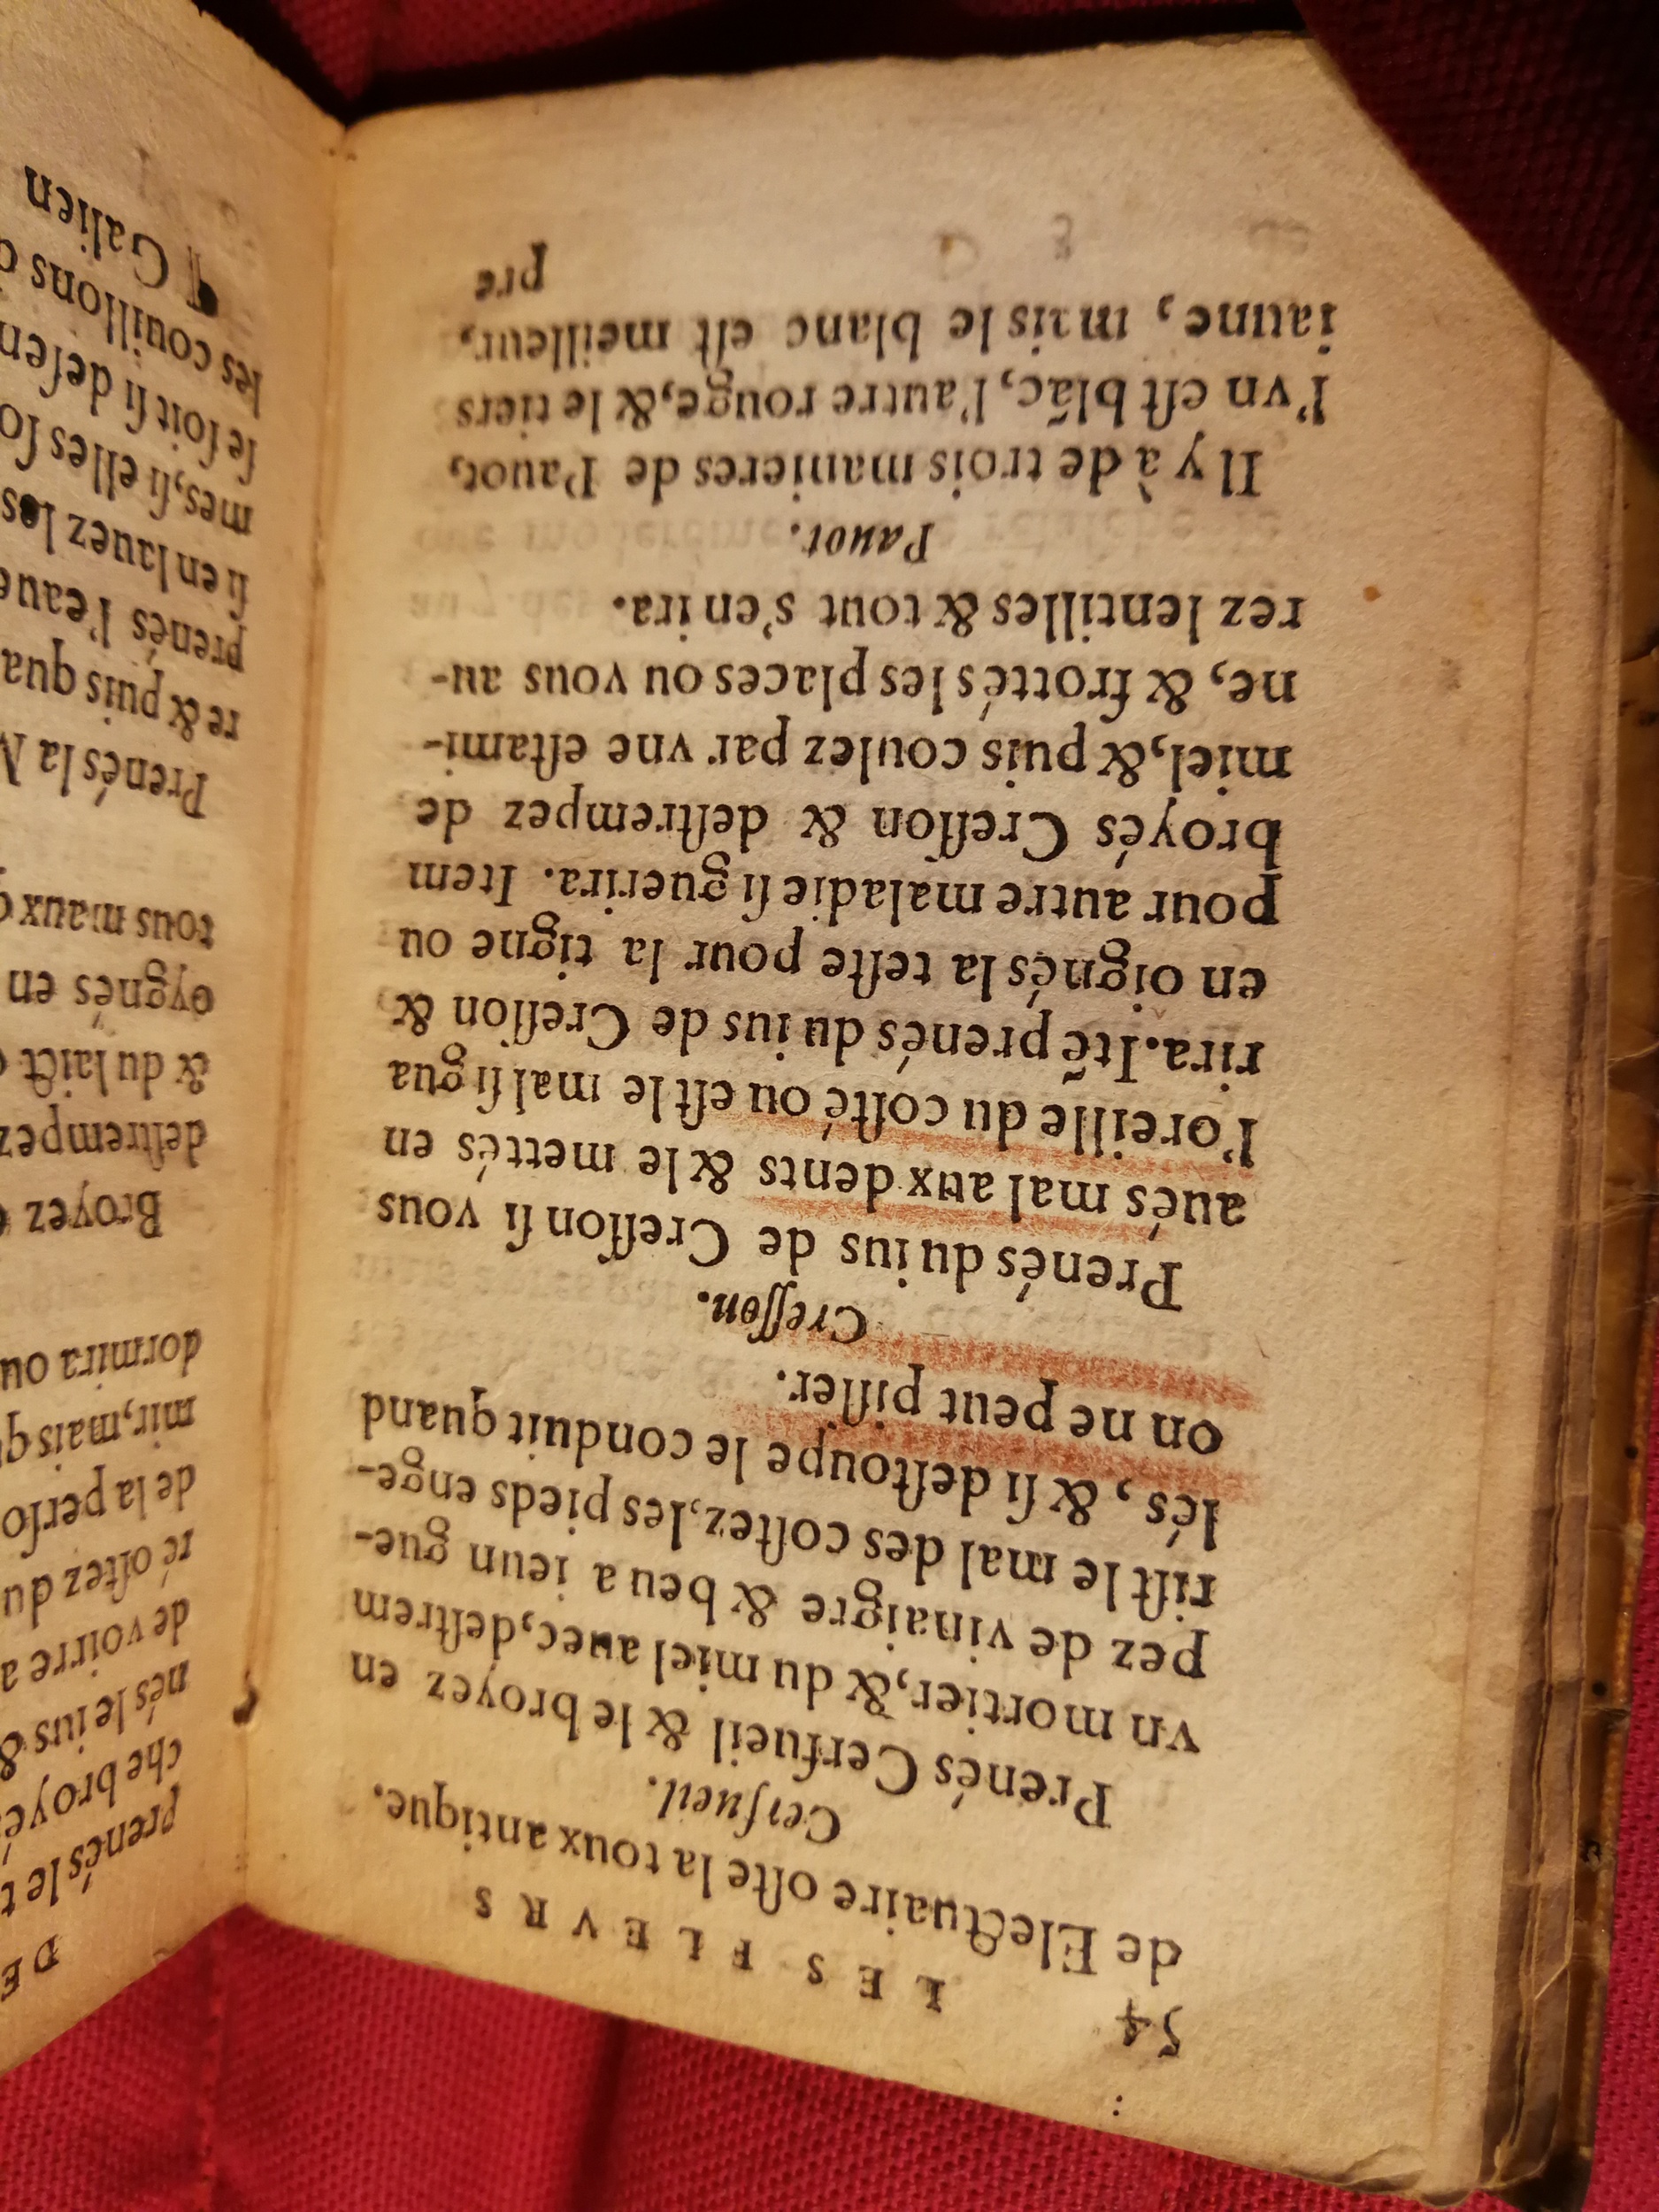 54
LES FLEVRS
de Electuaire oſte la toux antique.
Cerfueil.
Prenés Cerfueil & le broyez en
vn mortier,& du miel auec,deſtrem
pez de vinaigre & beu a ieun gue-
riſt le mal des coſtez,les pieds enge-
lés, & ſi deſtoupe le conduit quand
on ne peut piſſer.
Creſſon.
Prenés du ius de Creſſon ſi vous
aués mal aux dents & le mettés en
l'oreille du coſté ou eſt le mal ſi gua
rira.Itē prenés du ius de Creſſon &
en oignés la teſte pour la tigne ou
pour autre maladie ſi guerira. Item
broyés Creſſon & deſtrempez de
miel,& puis coulez par vne eſtami-
ne, & frottés les places ou vous au-
rez lentilles & tout s'en ira.
Pauot.
Il y à de trois manieres de Pauot,
l'vn eſt blāc, l'autre rouge,& le tiers
iaune, mais le blanc eſt meilleur,
pre
DE
Prenés le t
che broyé
nés le ius &
de voirre a
ré oſtez du
de la perſo
mir,mais q
dormira ou
Broyez
deſtrempez
& du laict
oygnés en
tous maux
Prenés la M
re & puis qua
prenés l'eaue
ſi en lauez les
mes,ſi elles ſo
ſe ſoit ſi deſen
les couillons
¶ Galien